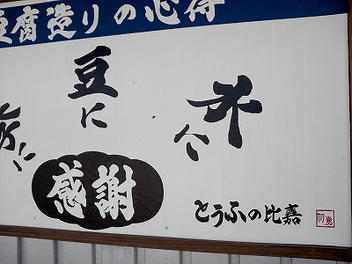 豆腐造りの心得
水に
豆に
感謝
とうふの比嘉